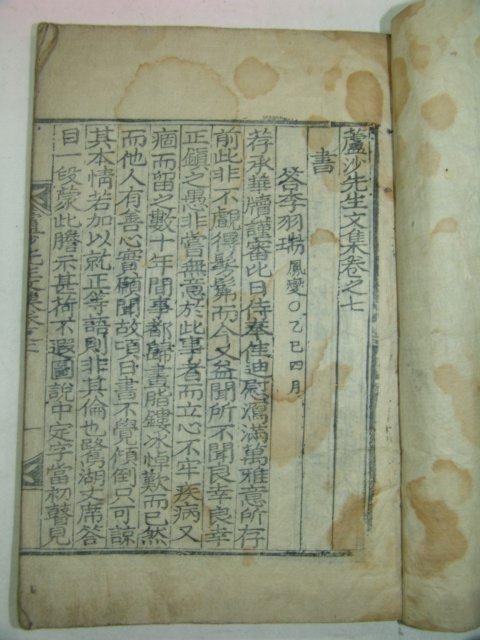 蘆沙先生文集卷之七
書
答李羽瑞鳳燮○乙巳四月
荐承華牘謹審比日侍奉佳迪慰瀉滿萬雅意所存
前此非不覰得髣髴而今又益聞所不聞良幸良幸
正鎭之愚非嘗無意於此事者而立心不牢疾病又
痼而留之數十年間事都歸畫脂鏤冰悼歎而已然
而他人有善心實願聞故頃日書不覺傾倒只可諒
其本情若加以就正等語則非其倫也鷺湖丈席答
目一段蒙此謄示甚荷不遐圖說中定字當初瞥見